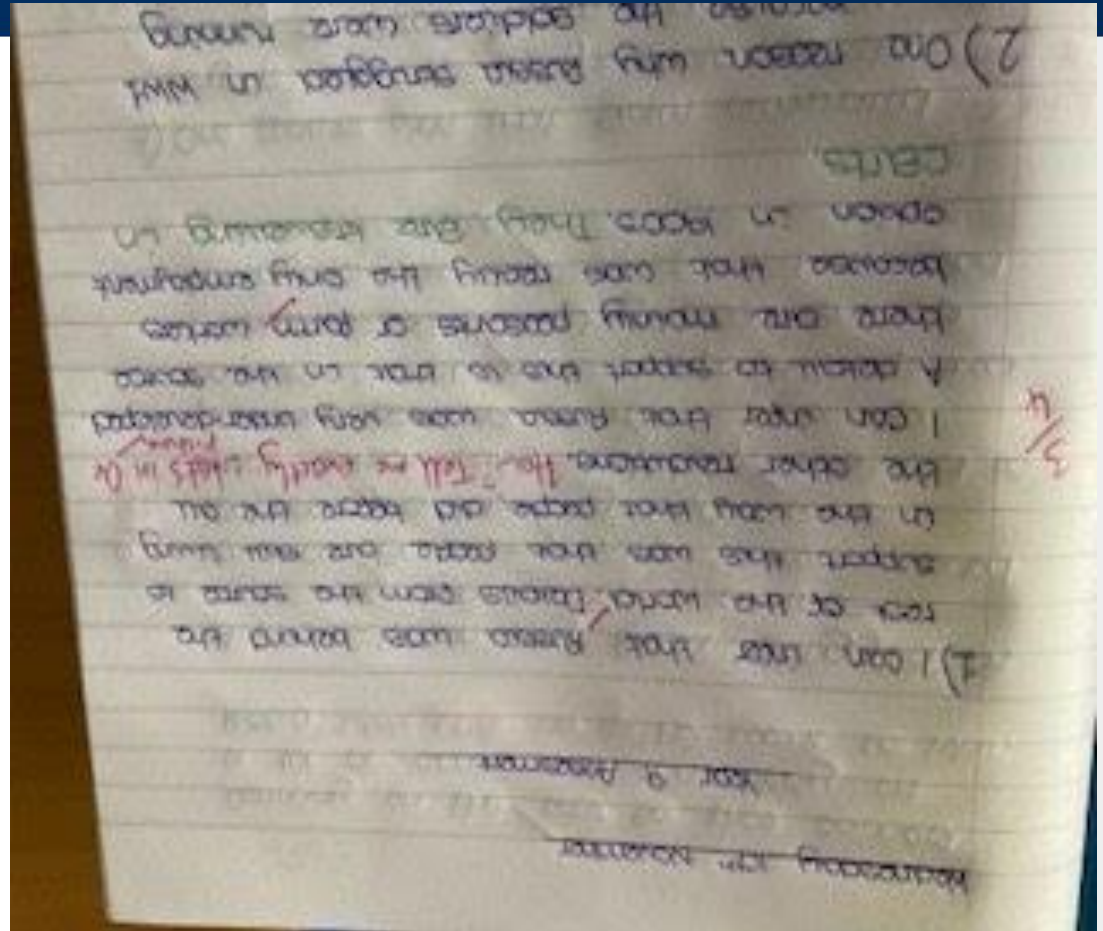 Wednesday November
Year 9 Assessment
1) I can infer that Russia was behind the
rest of the world. Details from the source to
support this was that people are still living
in the way that people did before the all
the other revolutions. "Tell me exactly what's in the picture"
3/4
I can infer that Russia was very under-developed
A detail to support this is that in the source
there are mainly peasants or farm workers
because that was really the only employment
option in 1900s. They are travelling in
carts.
2) One reason why Russia struggled in WW1
because the soldiers were running